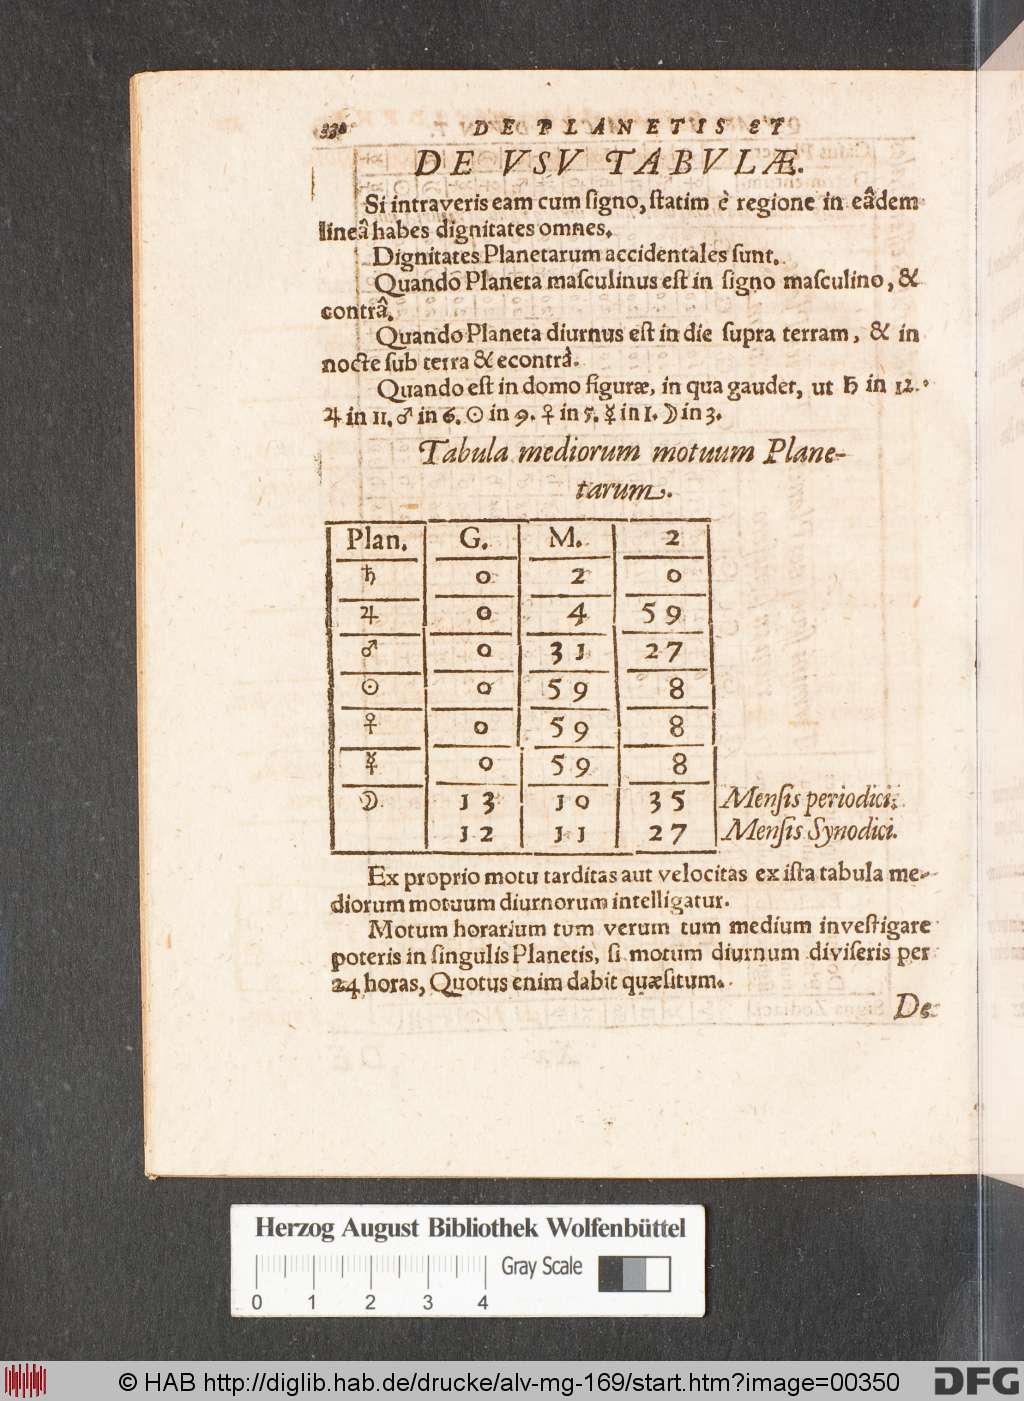 DE PLANETIS ET
DE VSV TABVLÆ.
Si intraveris eam cum ſigno, ſtatim è regione in eâdem
lineâ habes dignitates omnes.
Dignitates Planetarum accidentales ſunt.
Quando Planeta maſculinus eſt in ſigno maſculino, &
contrâ.
Quando Planeta diurnus eſt in die ſupra terram, & in
nocte ſub terra & econtrà.
Quando eſt in domo figuræ, in qua gaudet, ut ♄ in 12.
♃ in 11. ♂ in 6. ☉ in 9. ♀ in 5. ☿ in 1. ☽ in 3.
Tabula mediorum motuum Plane-
tarum.
Plan. G. M. 2
♄ 0 2 0
♃ 0 4 59
♂ 0 31 27
☉ 0 59 8
♀ 0 59 8
☿ 0 59 8
☽ 13 10 35 Menſis periodici.
12 11 27 Menſis Synodici.
Ex proprio motu tarditas aut velocitas ex iſta tabula me-
diorum motuum diurnorum intelligatur.
Motum horarium tum verum tum medium inveſtigare
poteris in ſingulis Planetis, ſi motum diurnum diviſeris per
24 horas, Quotus enim dabit quæſitum.
De
Herzog August Bibliothek Wolfenbüttel
Gray Scale
0 1 2 3 4
© HAB http://diglib.hab.de/drucke/alv-mg-169/start.htm?image=00350
DFG